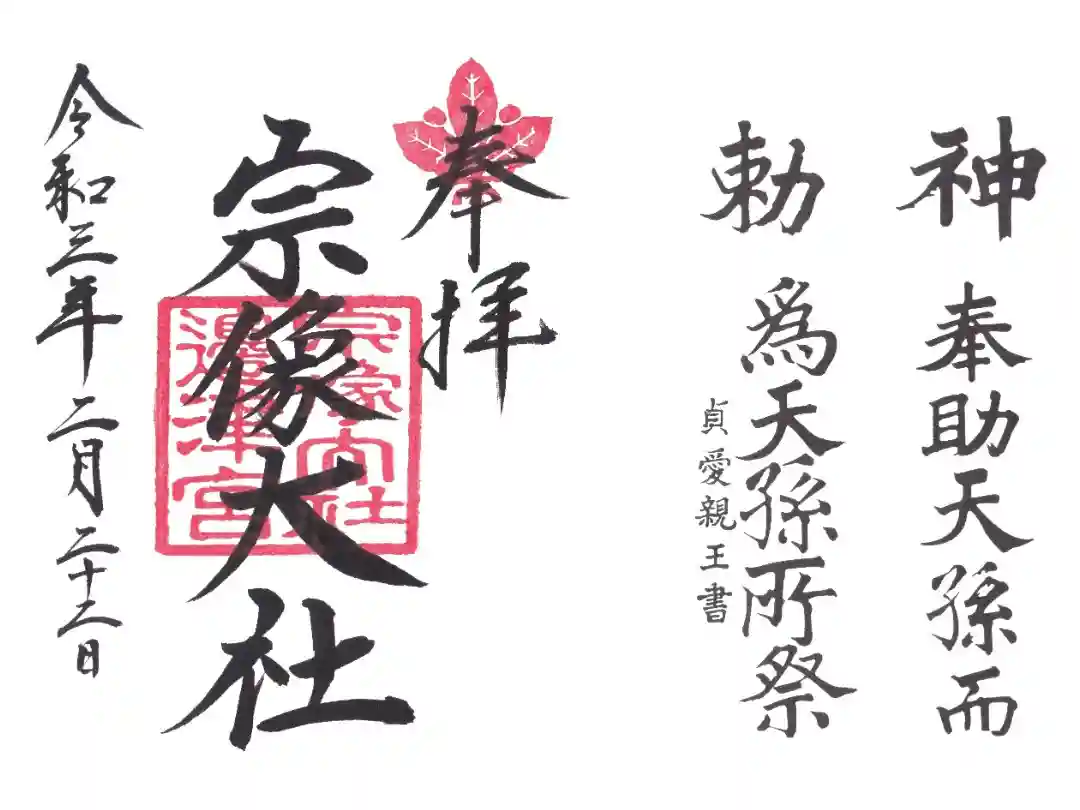 神勅
奉助天孫而
爲天孫所祭
貞愛親王書
奉拝
宗像大社
宗像大社
邊津宮
令和三年二月二十二日